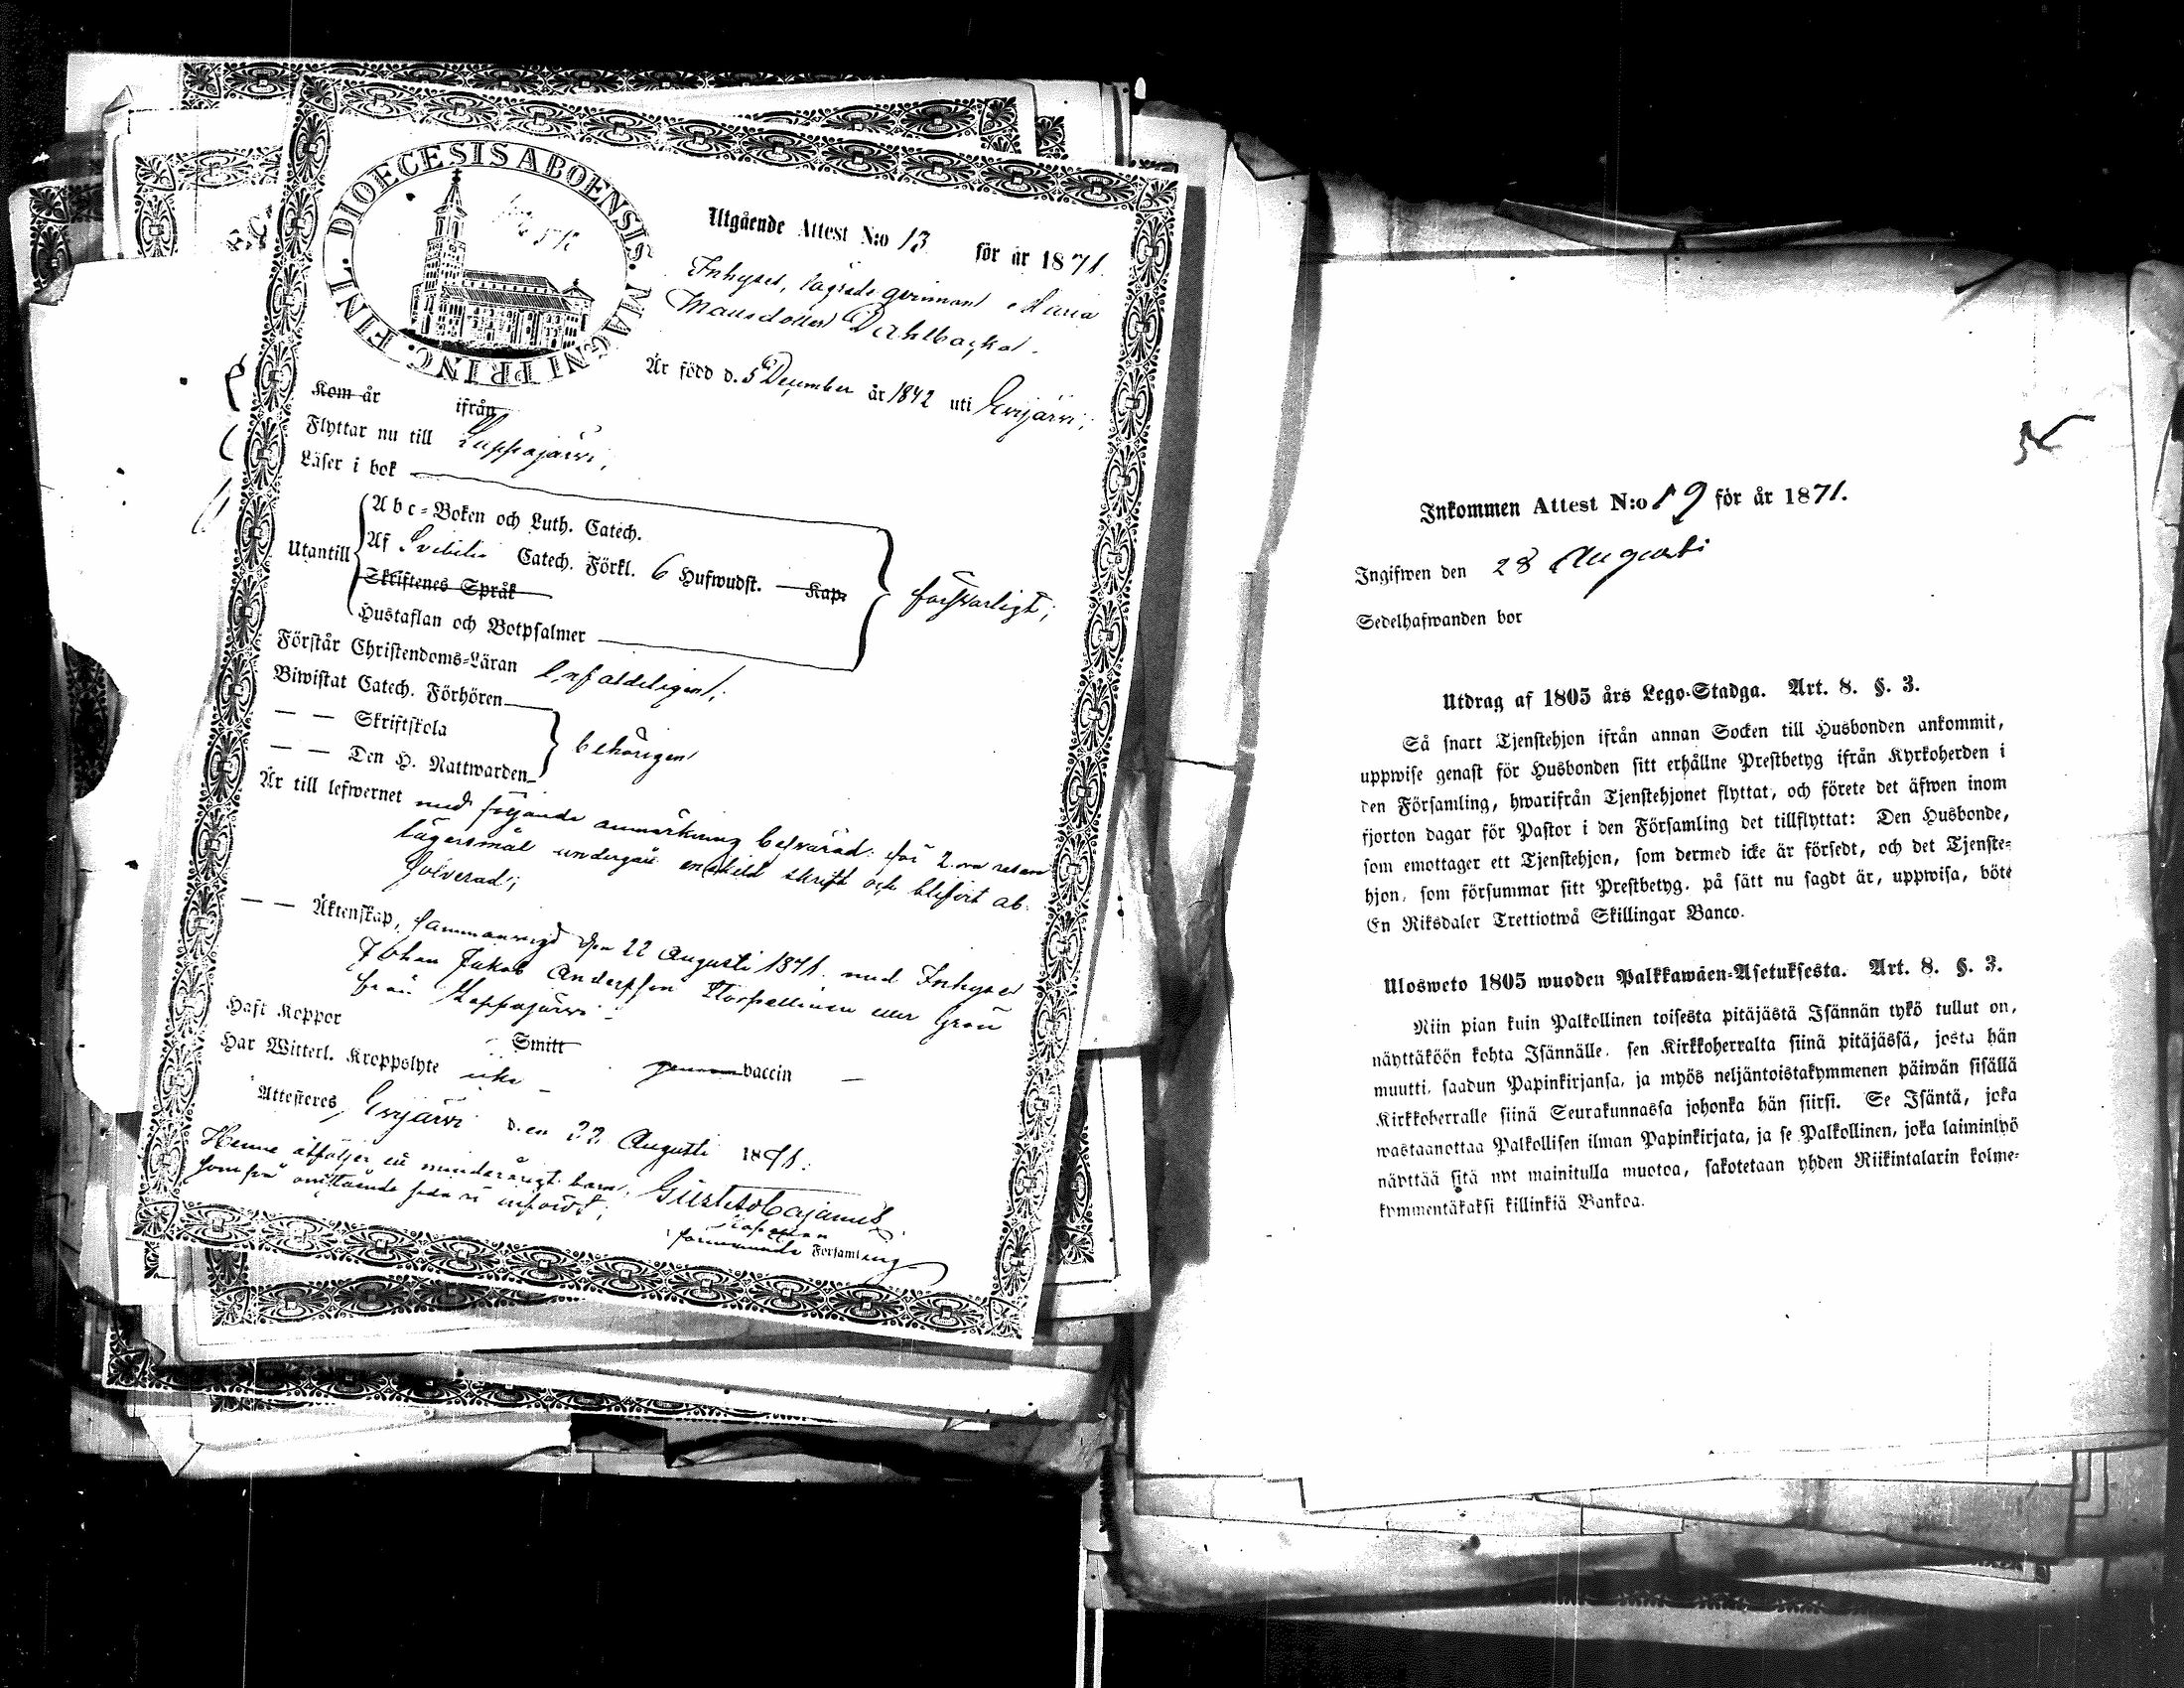 DIOECESIS ABOENSIS. MAGNI PRINC. FINL.
Utgående Attest N:o 13 för år 1871.
Inhyses, lägrade qvinnan Maria
Mansdotter Dahlbacka.
Är född d. 5 December år 1842 uti Evijärvi;
Kom år ifrån
Flyttar nu till Lappajärvi,
Läser i bok
Abc-Boken och Luth. Catech.
Utantill Af Svebilii Catech. Förkl. 6 Hufwudst. — Kap.
Skriftenes Språk
Hustaflan och Botpsalmer
försvarligt;
Förstår Christendoms-Läran enfaldeligen;
Biwistat Catech. Förhören
— — Skriftskola
— — Den H. Nattwarden
behörigen
Är till lefwernet med följande anmärkning besvärad: för 2:dra resan
lägersmål undergått enskild skrift och blifvit ab-
solverad;
— — Äktenskap, sammanvigd den 22 Augusti 1871. med Inhyses
Johan Jakob Andersson eller Grön
från Lappajärvi
Haft Koppor Smitt genom vaccin —
Har Witterl. Kroppslyte icke —
Attesteres, Evijärvi den 22 Augusti 1871.
Henne åtföljer ett minderårigt barn,
som på omstående sida är infördt;
Kapellan
Församling
Inkommen Attest N:o 19 för år 1871.
Ingifwen den 28 Augusti
Sedelhafwanden bor
Utdrag af 1805 års Lego-Stadga. Art. 8. §. 3.
Så snart Tjenstehjon ifrån annan Socken till Husbonden ankommit,
uppwise genast för Husbonden sitt erhållne Prestbetyg ifrån Kyrkoherden i
den Församling, hwarifrån Tjenstehjonet flyttat, och förete det äfwen inom
fjorton dagar för Pastor i den Församling det tillflyttat: Den Husbonde,
som emottager ett Tjenstehjon, som dermed icke är försedt, och det Tjenste-
hjon, som försummar sitt Prestbetyg, på sätt nu sagdt är, uppwisa, böte
En Riksdaler Trettiotwå Skillingar Banco.
Ulosweto 1805 wuoden Palkkawäen-Asetuksesta. Art. 8. §. 3.
Niin pian kuin Palkollinen toisesta pitäjästä Isännän tykö tullut on,
näyttäköön kohta Isännälle, sen Kirkkoherralta siinä pitäjässä, josta hän
muutti, saadun Papinkirjansa, ja myös neljäntoistakymmenen päiwän sisällä
Kirkkoherralle siinä Seurakunnassa johonka hän siirsi. Se Isäntä, joka
wastaanottaa Palkollisen ilman Papinkirjata, ja se Palkollinen, joka laiminlyö
näyttää sitä nyt mainitulla muotoa, sakotetaan yhden Riikintalarin kolme-
kymmentäkaksi killinkiä Bankoa.